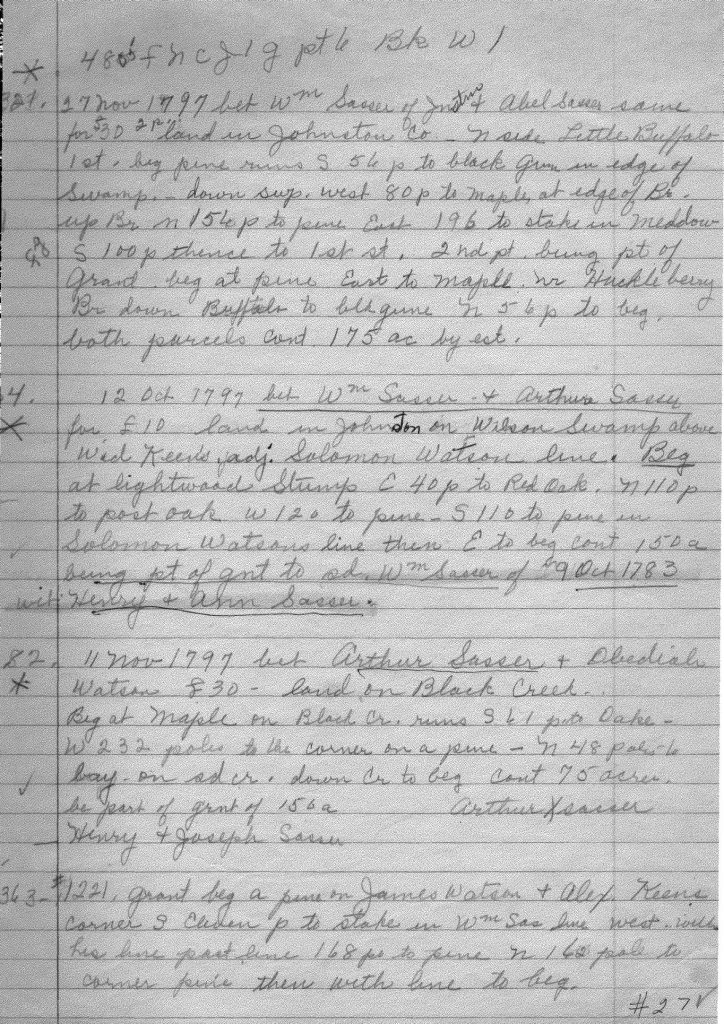 480 F N C J 1 g pt 6 Bk W 1
321. 27 Nov 1797 bet Wm Sasser of & Abel Sasser same
for 30 land in Johnston Co - N side Little Buffalo
1st. beg pine runs S 56 p to black Gum in edge of
Swamp. - down swp. west 80 p to Maple at edge of Br.
up Br N 156 p to pine East 196 to stake in Meddow
S 100 p thence to 1st st. 2nd pt. being pt of
Grant beg at pine East to maple nr Huckleberry
Br down Buffalo to blk gum N 56 p to beg.
both parcels cont 175 ac by est.
4. 12 Oct 1797 bet Wm Sasser & Arthur Sasser
for £10 land in Johnston on Wilson Swamp above
Wid Keens, adj. Solomon Watson line. Beg
at lightwood Stump E 40 p to Red Oak. N 110 p
to post oak W 120 to pine - S 110 to pine in
Solomon Watsons line then E to beg cont 150 a
being pt of gnt to sd. Wm Sasser of 9 Oct 1783
wit Henry & Ann Sasser.
82. 11 Nov 1797 bet Arthur Sasser & Obediah
Watson £30 - land on Black Creek..
Beg at Maple on Black Cr. runs S 61 p to Oake -
W 232 poles to the corner on a pine - N 48 poles to
bay - on sd cr. down Cr to beg cont 75 acres.
be part of grnt of 150 a Arthur X Sasser
Henry & Joseph Sasser
363 - #1221. grant beg a pine on James Watson & Alex. Keens
corner S Eleven p to stake in Wm Sas line west. with
his line past line 168 po to pine N 162 pole to
corner pine then with line to beg.
#27 ✓